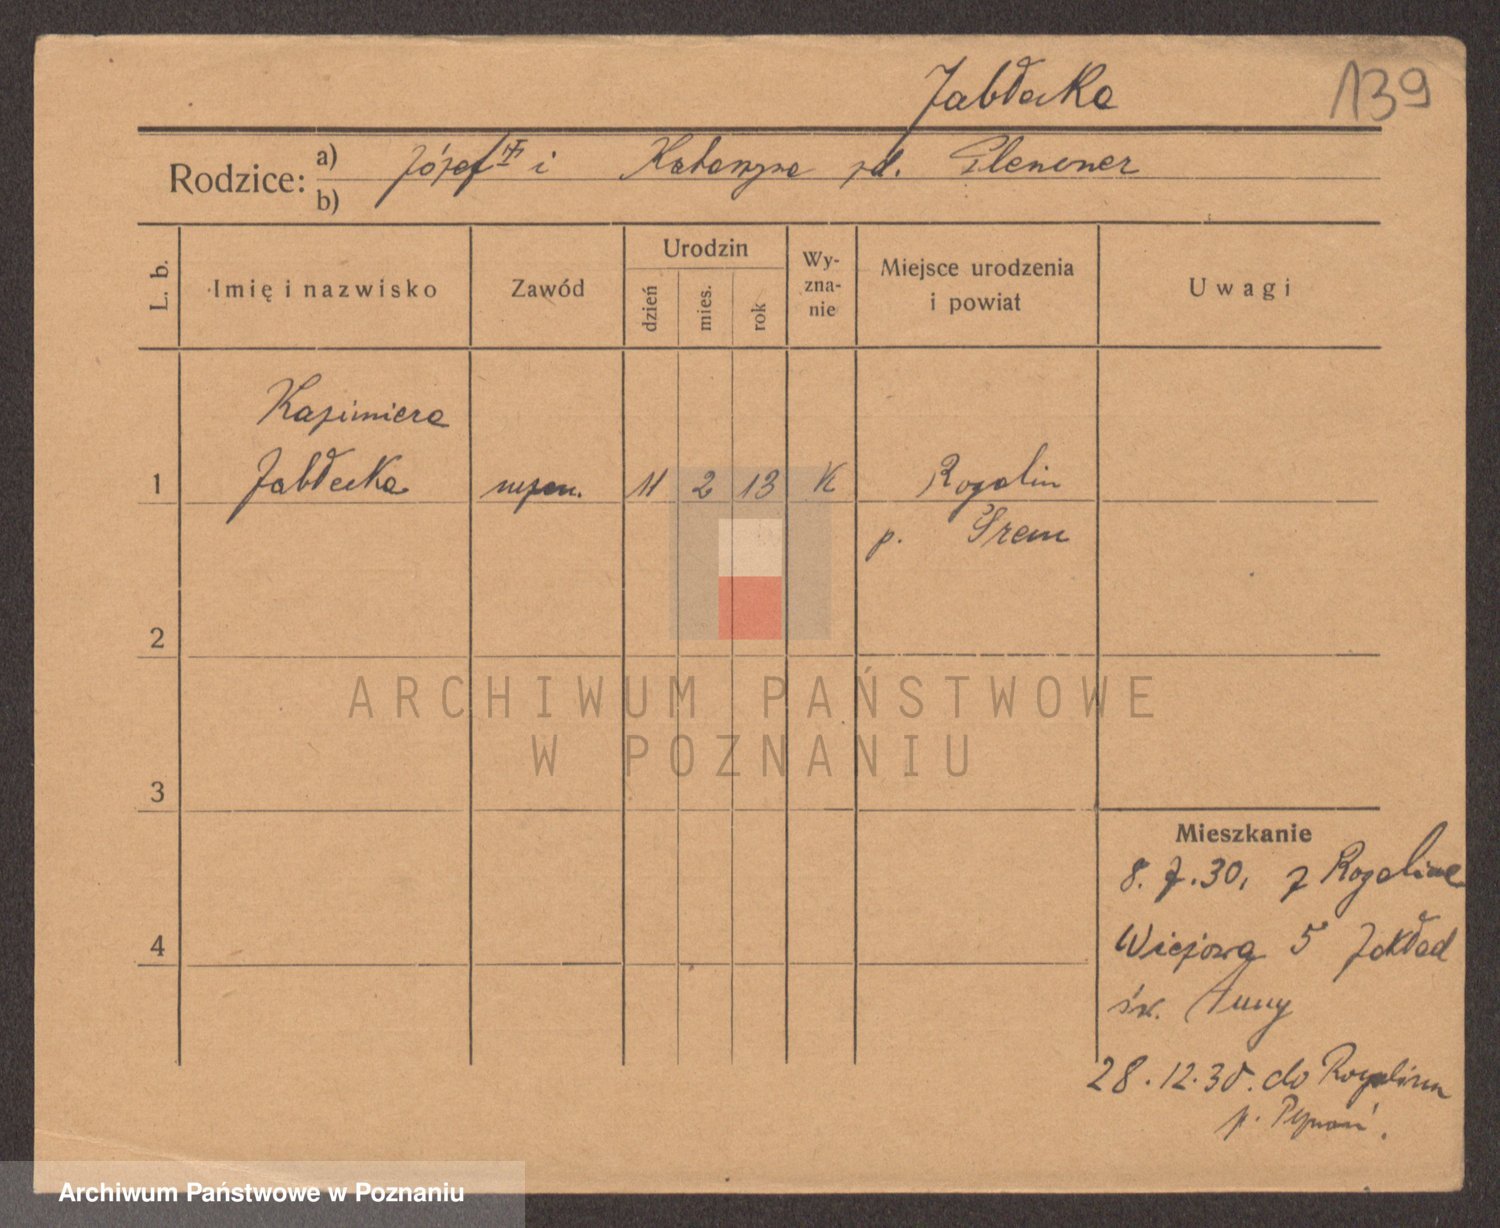 Jabłecka
139
Rodzice: a) Józef i Katarzyna zd.
b)
L. b.
Imię i nazwisko
Zawód
Urodzin
dzień
mies.
rok
Wy-
zna-
nie
Miejsce urodzenia
i powiat
Uwagi
Kazimiera
1 Jabłecka 11 2 13 K Rogalin
p. Śrem
2
ARCHIWUM PAŃSTWOWE
W POZNANIU
3
Mieszkanie
8. 7. 30, z Rogalina
4 Wiejowa 5 Zakład
św. Anny
28. 12. 30. do Rogalina
p. Poznań.
Archiwum Państwowe w Poznaniu